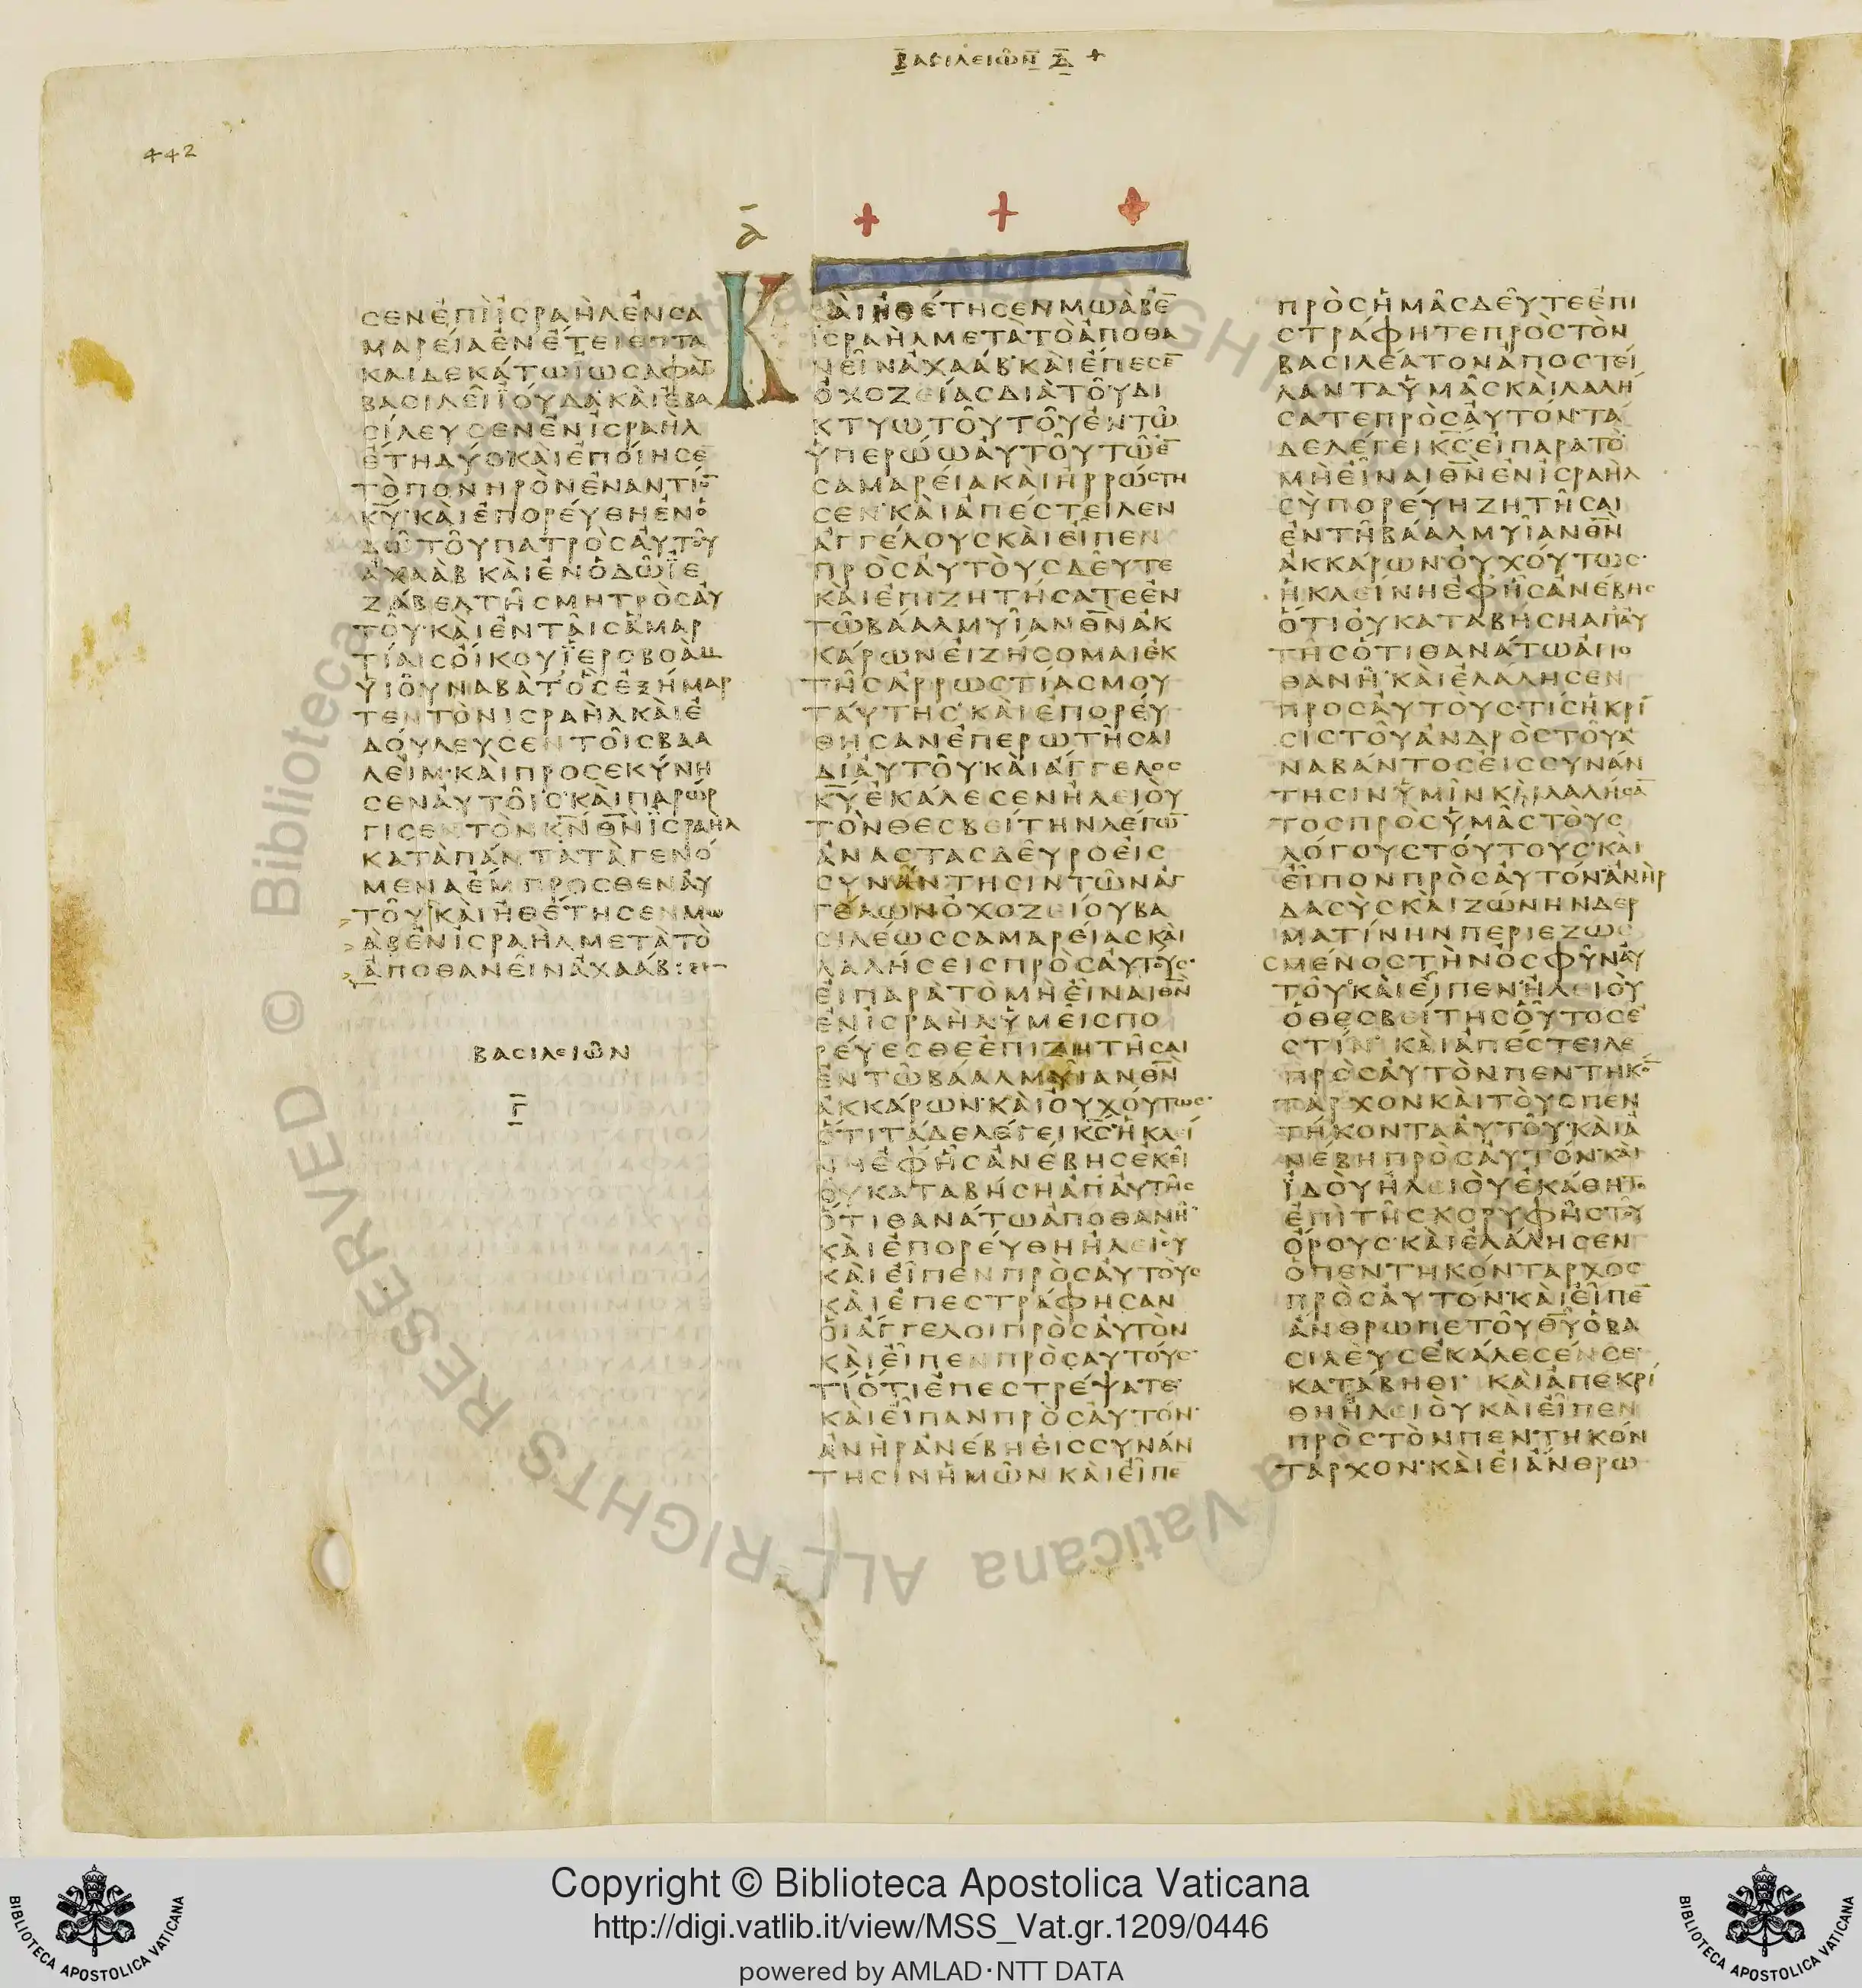 ΒΑΣΙΛΕΙῶΝ Δ +
442
α
ϹΕΝΕΠΙΙϹΡΑΗΛΕΝϹΑ
ΜΑΡΕΙΑΕΝΕΤΕΙΕΠΤΑ
ΚΑΙΔΕΚΑΤΩΙΩϹΑΦΑΤ
ΒΑϹΙΛΕΙΙΟΥΔΑΚΑΙΕΒΑ
ϹΙΛΕΥϹΕΝΕΝΙϹΡΑΗΛ
ΕΤΗΔΥΟ·ΚΑΙΕΠΟΙΗϹΕ̅
ΤΟΠΟΝΗΡΟΝΕΝΑΝΤΙΟ̅
Κ̅Υ̅·ΚΑΙΕΠΟΡΕΥΘΗΕΝΟ
ΔΩΤΟΥΠΑΤΡΟϹΑΥΤΟΥ
ΑΧΑΑΒΚΑΙΕΝΟΔΩΙΕ
ΖΑΒΕΛΤΗϹΜΗΤΡΟϹΑΥ
ΤΟΥ·ΚΑΙΕΝΤΑΙϹΑΜΑΡ
ΤΙΑΙϹΟΙΚΟΥΙΕΡΟΒΟΑΜ
ΥΙΟΥΝΑΒΑΤ·ΟϹΕΞΗΜΑΡ
ΤΕΝΤΟΝΙϹΡΑΗΛΚΑΙΕ
ΔΟΥΛΕΥϹΕΝΤΟΙϹΒΑΑ
ΛΕΙΜ·ΚΑΙΠΡΟϹΕΚΥΝΗ
ϹΕΝΑΥΤΟΙϹ·ΚΑΙΠΑΡΩΡ
ΓΙϹΕΝΤΟΝΚ̅Ν̅Θ̅Ν̅ΙϹΡΑΗΛ
ΚΑΤΑΠΑΝΤΑΤΑΓΕΝΟ
ΜΕΝΑΕΜΠΡΟϹΘΕΝΑΥ
ΤΟΥ·ΚΑΙΗΘΕΤΗϹΕΝΜΩ
ΑΒΕΝΙϹΡΑΗΛΜΕΤΑΤΟ
ΑΠΟΘΑΝΕΙΝΑΧΑΑΒ:
ΒΑϹΙΛΕΙΩΝ
Γ̅
ΚΑΙΗΘΕΤΗϹΕΝΜΩΑΒΕ̅
ΙϹΡΑΗΛΜΕΤΑΤΟΑΠΟΘΑ
ΝΕΙΝΑΧΑΑΒ·ΚΑΙΕΠΕϹΕ̅
ΟΧΟΖΕΙΑϹΔΙΑΤΟΥΔΙ
ΚΤΥΩΤΟΥΤΟΥΕΝΤΩ
ΥΠΕΡΩΩΑΥΤΟΥΤΩΕ̅
ϹΑΜΑΡΕΙΑΚΑΙΗΡΡΩϹΤΗ
ϹΕΝ·ΚΑΙΑΠΕϹΤΕΙΛΕΝ
ΑΓΓΕΛΟΥϹΚΑΙΕΙΠΕΝ
ΠΡΟϹΑΥΤΟΥϹΔΕΥΤΕ
ΚΑΙΕΠΙΖΗΤΗϹΑΤΕΕΝ
ΤΩΒΑΑΛΜΥΙΑΝΘ̅Ν̅ΑΚ
ΚΑΡΩΝΕΙΖΗϹΟΜΑΙΕΚ
ΤΗϹΑΡΡΩϹΤΙΑϹΜΟΥ
ΤΑΥΤΗϹ·ΚΑΙΕΠΟΡΕΥ
ΘΗϹΑΝΕΠΕΡΩΤΗϹΑΙ
ΔΙΑΥΤΟΥ·ΚΑΙΑΓΓΕΛΟϹ
Κ̅Υ̅ΕΚΑΛΕϹΕΝΗΛΕΙΟΥ
ΤΟΝΘΕϹΒΕΙΤΗΝΛΕΓΩ̅
ΑΝΑϹΤΑϹΔΕΥΡΟΕΙϹ
ϹΥΝΑΝΤΗϹΙΝΤΩΝΑΓ
ΓΕΛΩΝΟΧΟΖΕΙΟΥΒΑ
ϹΙΛΕΩϹϹΑΜΑΡΕΙΑϹΚΑΙ
ΛΑΛΗϹΕΙϹΠΡΟϹΑΥΤΟΥϹ·
ΕΙΠΑΡΑΤΟΜΗΕΙΝΑΙΘ̅Ν̅
ΕΝΙϹΡΑΗΛΥΜΕΙϹΠΟ
ΡΕΥΕϹΘΕΕΠΙΖΗΤΗϹΑΙ
ΕΝΤΩΒΑΑΛΜΥΙΑΝΘ̅Ν̅
ΑΚΚΑΡΩΝ·ΚΑΙΟΥΧΟΥΤΩϹ·
ΟΤΙΤΑΔΕΛΕΓΕΙΚ̅Ϲ̅·ΗΚΛΕΙ
ΝΗΕΦΗϹΑΝΕΒΗϹΕΚΕΙ
ΟΥΚΑΤΑΒΗϹΗΑΠΑΥΤΗϹ
ΟΤΙΘΑΝΑΤΩΑΠΟΘΑΝΗ·
ΚΑΙΕΠΟΡΕΥΘΗΗΛΕΙΟΥ
ΚΑΙΕΙΠΕΝΠΡΟϹΑΥΤΟΥϹ
ΚΑΙΕΠΕϹΤΡΑΦΗϹΑΝ
ΟΙΑΓΓΕΛΟΙΠΡΟϹΑΥΤΟΝ
ΚΑΙΕΙΠΕΝΠΡΟϹΑΥΤΟΥϹ·
ΤΙΟΤΙΕΠΕϹΤΡΕΨΑΤΕ·
ΚΑΙΕΙΠΑΝΠΡΟϹΑΥΤΟΝ·
ΑΝΗΡΑΝΕΒΗΕΙϹϹΥΝΑΝ
ΤΗϹΙΝΗΜΩΝΚΑΙΕΙΠΕ
ΠΡΟϹΗΜΑϹΔΕΥΤΕΕΠΙ
ϹΤΡΑΦΗΤΕΠΡΟϹΤΟΝ
ΒΑϹΙΛΕΑΤΟΝΑΠΟϹΤΕΙ
ΛΑΝΤΑΥΜΑϹΚΑΙΛΑΛΗ
ϹΑΤΕΠΡΟϹΑΥΤΟΝ·ΤΑ
ΔΕΛΕΓΕΙΚ̅Ϲ̅·ΕΙΠΑΡΑΤΟ
ΜΗΕΙΝΑΙΘ̅Ν̅ΕΝΙϹΡΑΗΛ
ϹΥΠΟΡΕΥΗΖΗΤΗϹΑΙ
ΕΝΤΗΒΑΑΛΜΥΙΑΝΘ̅Ν̅
ΑΚΚΑΡΩΝ·ΟΥΧΟΥΤΩϹ·
ΗΚΛΕΙΝΗΕΦΗϹΑΝΕΒΗϹ
ΟΤΙΟΥΚΑΤΑΒΗϹΗΑΠΑΥ
ΤΗϹΟΤΙΘΑΝΑΤΩΑΠΟ
ΘΑΝΗ·ΚΑΙΕΛΑΛΗϹΕΝ
ΠΡΟϹΑΥΤΟΥϹ·ΤΙϹΗΚΡΙ
ϹΙϹΤΟΥΑΝΔΡΟϹΤΟΥΑ
ΝΑΒΑΝΤΟϹΕΙϹϹΥΝΑΝ
ΤΗϹΙΝΥΜΙΝΚΑΙΛΑΛΗϹΑ̅
ΤΟϹΠΡΟϹΥΜΑϹΤΟΥϹ
ΛΟΓΟΥϹΤΟΥΤΟΥϹ·ΚΑΙ
ΕΙΠΟΝΠΡΟϹΑΥΤΟΝ·ΑΝΗΡ
ΔΑϹΥϹΚΑΙΖΩΝΗΝΔΕΡ
ΜΑΤΙΝΗΝΠΕΡΙΕΖΩϹ
ϹΜΕΝΟϹΤΗΝΟϹΦΥΝΑΥ
ΤΟΥ·ΚΑΙΕΙΠΕΝ·ΗΛΕΙΟΥ
ΟΘΕϹΒΕΙΤΗϹΟΥΤΟϹΕ
ϹΤΙΝ· ΚΑΙΑΠΕϹΤΕΙΛΕ
ΠΡΟϹΑΥΤΟΝΠΕΝΤΗΚΟ̅
ΤΑΡΧΟΝΚΑΙΤΟΥϹΠΕΝ
ΤΗΚΟΝΤΑΑΥΤΟΥ·ΚΑΙΑ
ΝΕΒΗΠΡΟϹΑΥΤΟΝ·ΚΑΙ
ΙΔΟΥΗΛΕΙΟΥΕΚΑΘΗΤΟ
ΕΠΙΤΗϹΚΟΡΥΦΗϹΤΟΥ
ΟΡΟΥϹ·ΚΑΙΕΛΑΛΗϹΕΝ
ΟΠΕΝΤΗΚΟΝΤΑΡΧΟϹ
ΠΡΟϹΑΥΤΟΝ·ΚΑΙΕΙΠΕ̅
ΑΝΘΡΩΠΕΤΟΥΘ̅Υ̅ΟΒΑ
ϹΙΛΕΥϹΕΚΑΛΕϹΕΝϹΕ·
ΚΑΤΑΒΗΘΙ· ΚΑΙΑΠΕΚΡΙ
ΘΗΗΛΕΙΟΥΚΑΙΕΙΠΕΝ
ΠΡΟϹΤΟΝΠΕΝΤΗΚΟΝ
ΤΑΡΧΟΝ·ΚΑΙΕΙΑΝΘΡΩ
© Biblioteca Apostolica Vaticana ALL RIGHTS RESERVED
Copyright © Biblioteca Apostolica Vaticana
http://digi.vatlib.it/view/MSS_Vat.gr.1209/0446
powered by AMLAD·NTT DATA
BIBLIOTECA APOSTOLICA VATICANA
BIBLIOTECA APOSTOLICA VATICANA